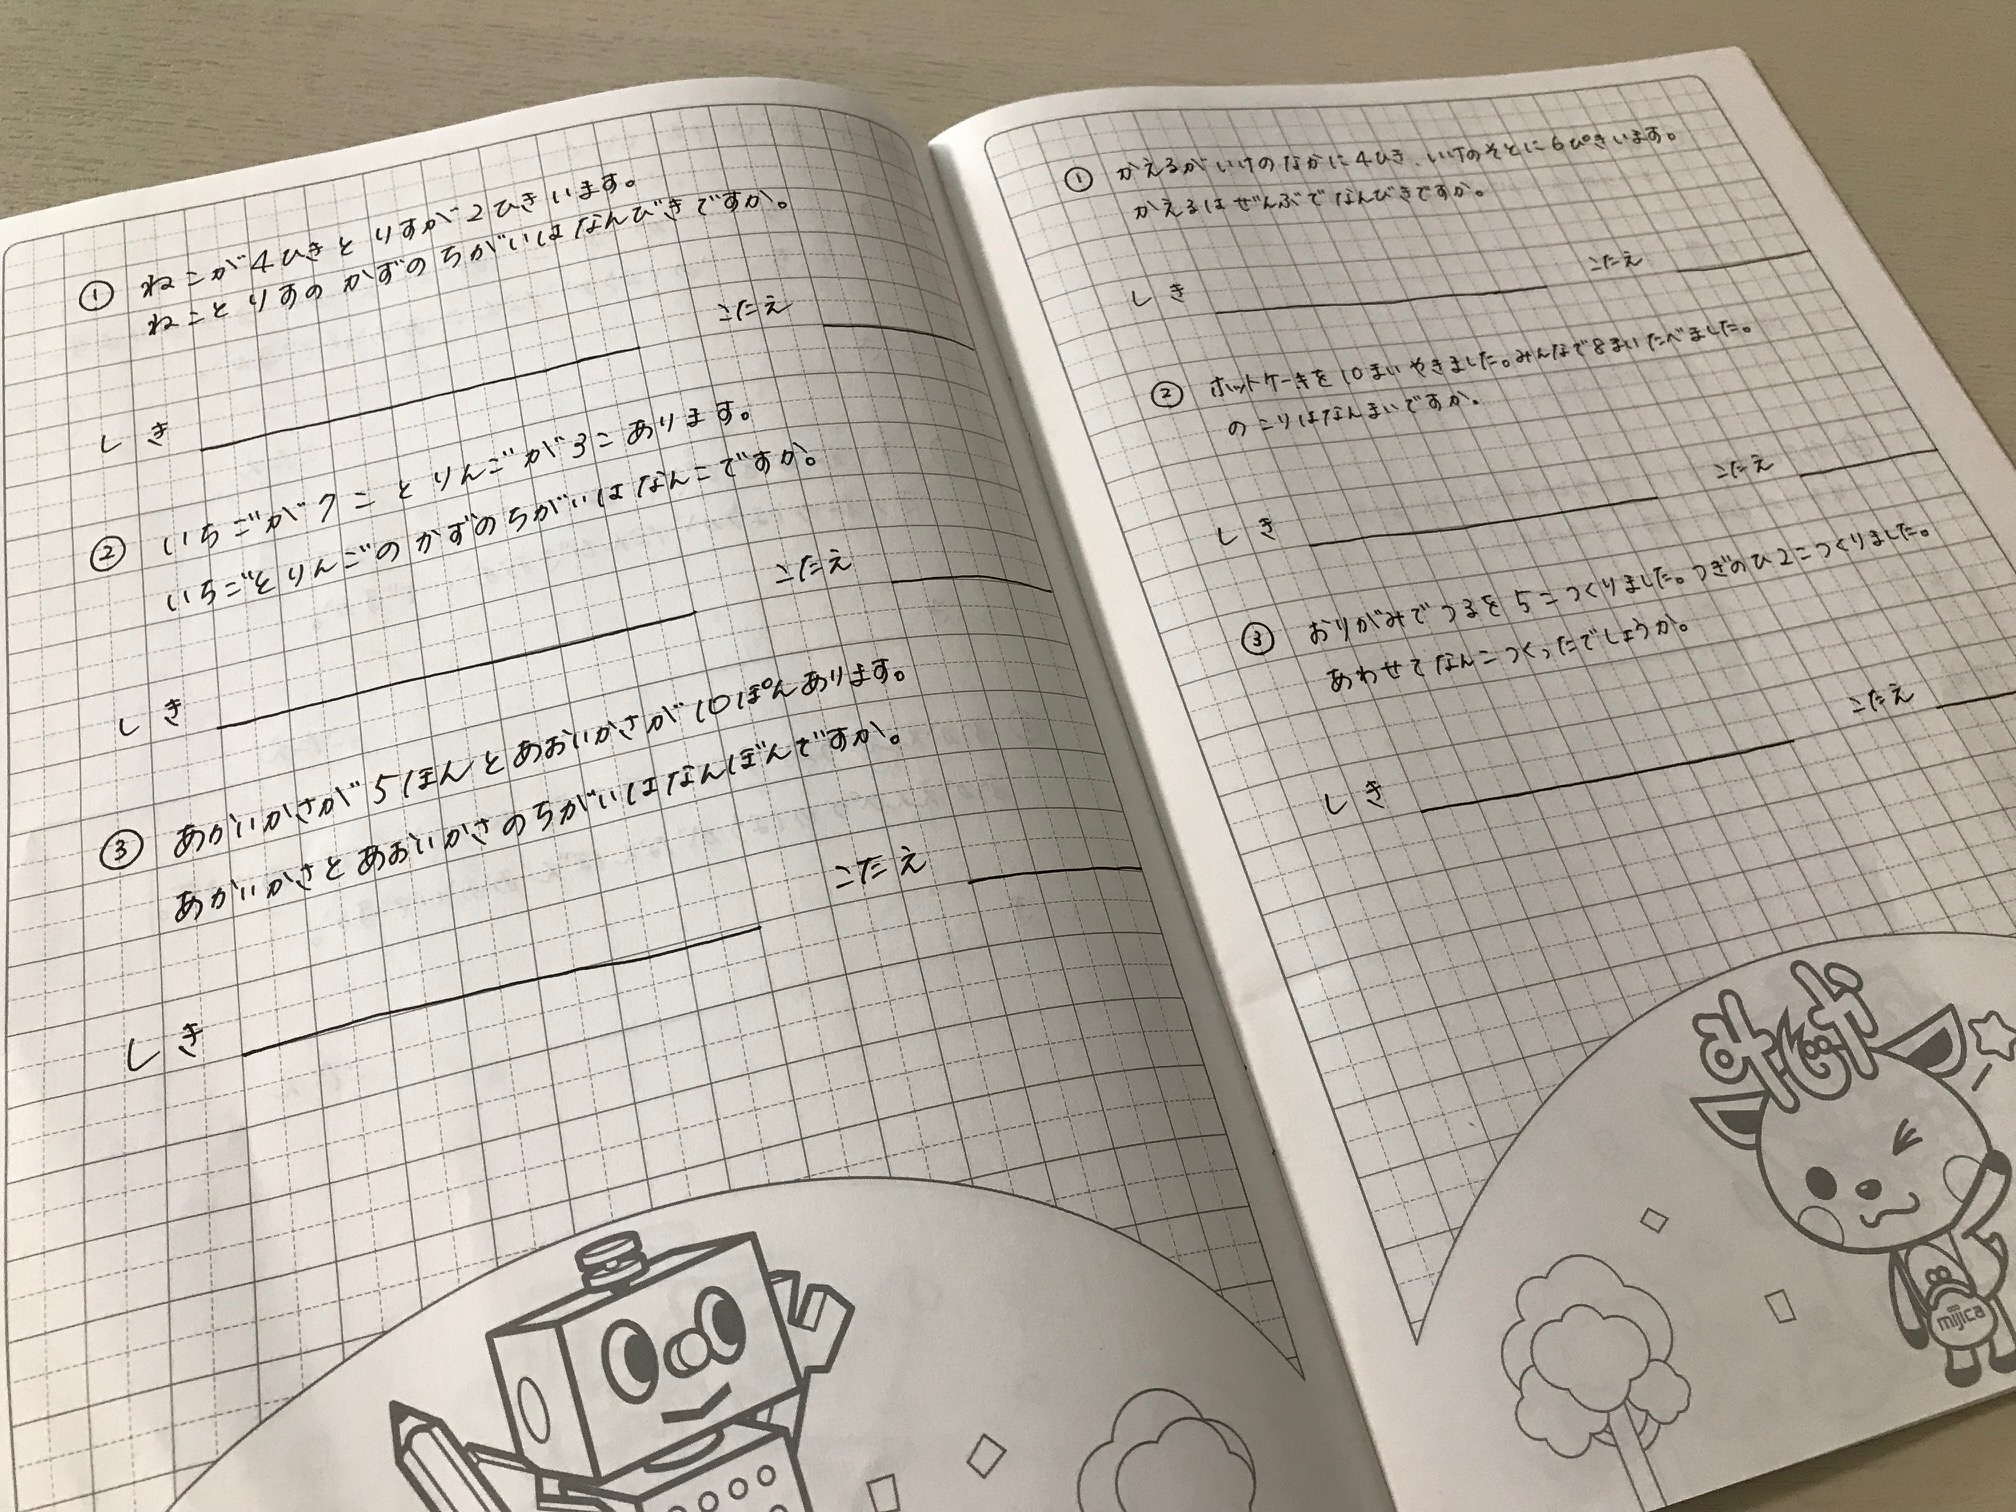 ① ねこが4ひきとりすが2ひきいます。
ねことりすのかずのちがいはなんびきですか。
こたえ
しき
② いちごが7ことりんごが3こあります。
いちごとりんごのかずのちがいはなんこですか。
こたえ
しき
③ あかいかさが5ほんとあおいかさが10ぽんあります。
あかいかさとあおいかさのちがいはなんぼんですか。
こたえ
しき
① かえるがいけのなかに4ひき、いけのそとに6ぴきいます。
かえるはぜんぶでなんびきですか。
こたえ
しき
② ホットケーキを10まいやきました。みんなで8まいたべました。
のこりはなんまいですか。
こたえ
しき
③ おりがみでつるを5こつくりました。つぎのひ2こつくりました。
あわせてなんこつくったでしょうか。
こたえ
しき
みじか
mijica